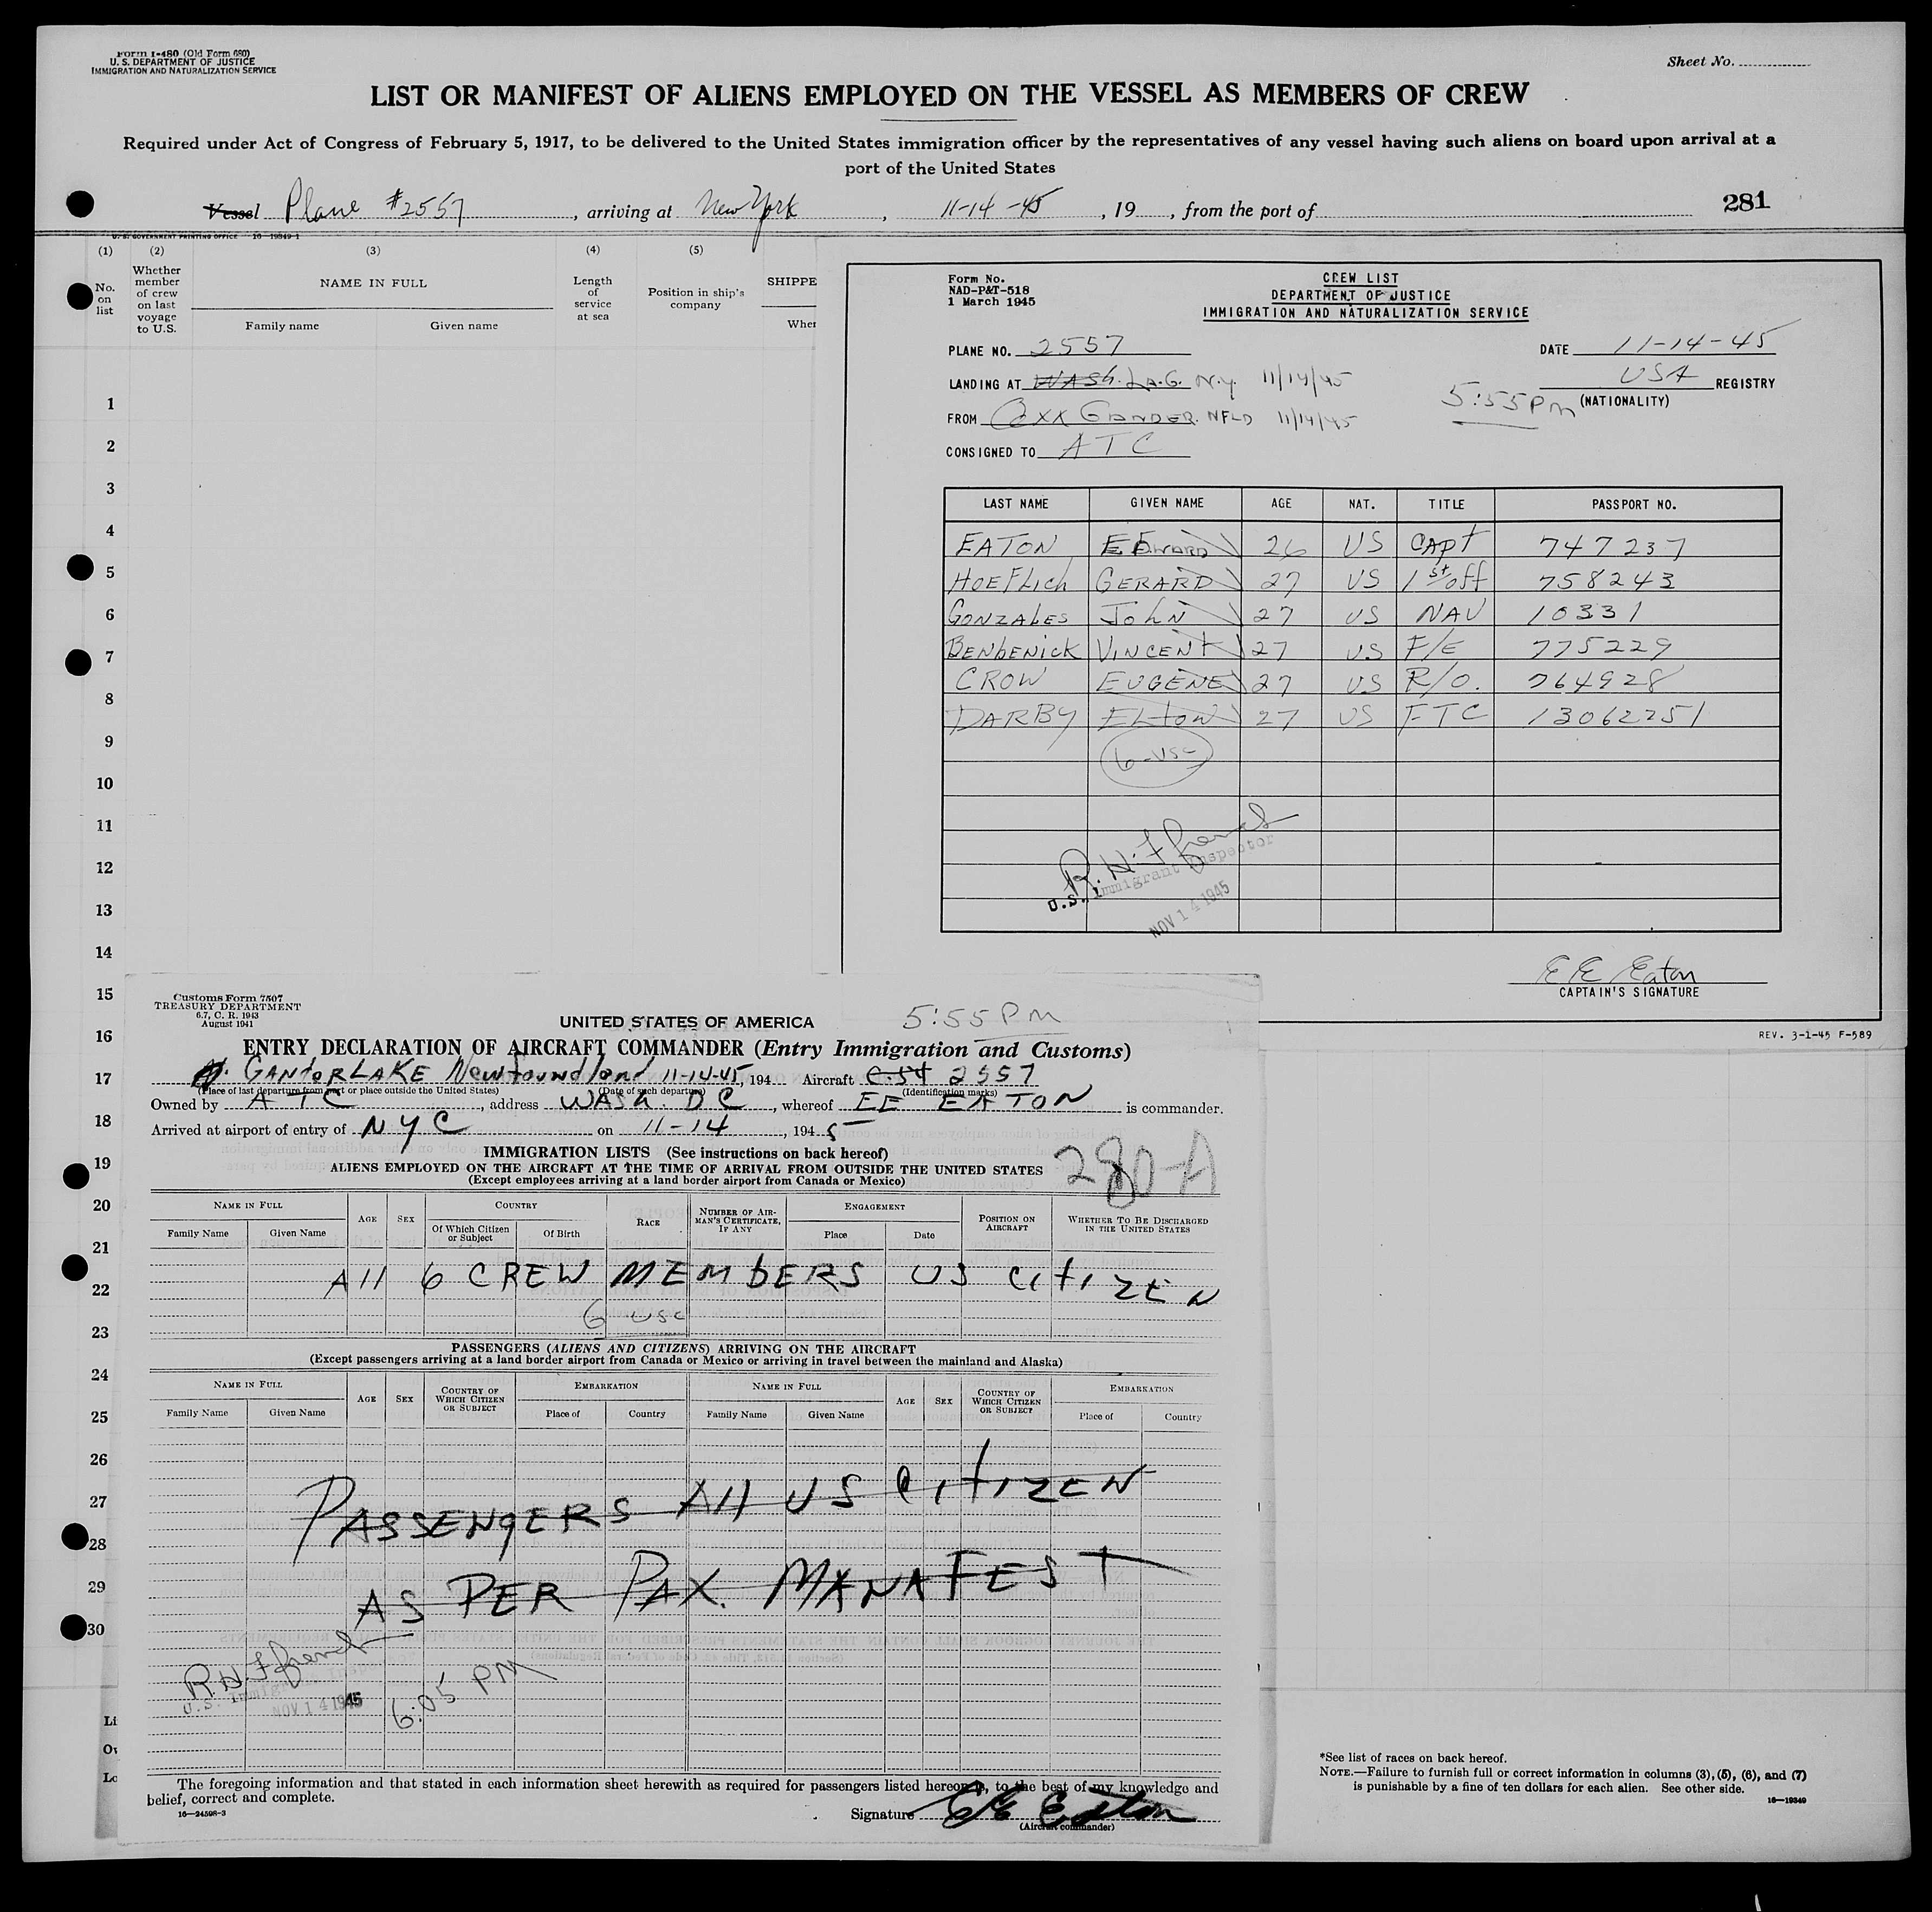 Form I-480 (Old Form 680)
U. S. DEPARTMENT OF JUSTICE
IMMIGRATION AND NATURALIZATION SERVICE
Sheet No.
LIST OR MANIFEST OF ALIENS EMPLOYED ON THE VESSEL AS MEMBERS OF CREW
Required under Act of Congress of February 5, 1917, to be delivered to the United States immigration officer by the representatives of any vessel having such aliens on board upon arrival at a
port of the United States
Vessel Plane #2557, arriving at New York, 11-14-45, 19, from the port of 281
U. S. GOVERNMENT PRINTING OFFICE 16-19849-1
(1) (2) (3) (4) (5)
No. on list
Whether member of crew on last voyage to U.S.
NAME IN FULL
Family name Given name
Length of service at sea
Position in ship's company
SHIPPE
Wher
1
2
3
4
5
6
7
8
9
10
11
12
13
14
15
16
17
18
19
20
21
22
23
24
25
26
27
28
29
30
Li
Ov
Lo
Form No.
NAD-P&T-518
1 March 1945
CREW LIST
DEPARTMENT OF JUSTICE
IMMIGRATION AND NATURALIZATION SERVICE
PLANE NO. 2557
DATE 11-14-45
LANDING AT WASH. La.G. N.Y. 11/14/45
USA REGISTRY
5:55 PM (NATIONALITY)
FROM GANDER. NFLD 11/14/45
CONSIGNED TO ATC
LAST NAME GIVEN NAME AGE NAT. TITLE PASSPORT NO.
EATON E EDWARD 26 US CAPT 747237
HOEFLich GERARD 27 US 1st off 758243
GONZALES JOHN 27 US NAV 10331
BENBENICK VINCENT 27 US F/E 775229
CROW EUGENE 27 US R/O. 764928
DARBY ELTON 27 US FTC 13062251
6-USC
R. H.
U.S. Immigrant Inspector
NOV 14 1945
EE Eaton
CAPTAIN'S SIGNATURE
REV. 3-1-45 F-589
Customs Form 7507
TREASURY DEPARTMENT
6.7, C. R. 1943
August 1941
UNITED STATES OF AMERICA
5:55 PM
ENTRY DECLARATION OF AIRCRAFT COMMANDER (Entry Immigration and Customs)
GANTOR LAKE Newfoundland 11-14-45, 194 Aircraft C-54 2557
(Place of last departure from port or place outside the United States) (Date of such departure) (Identification marks)
Owned by ATC, address WASH. DC, whereof EE EATON is commander.
Arrived at airport of entry of NYC on 11-14, 1945
IMMIGRATION LISTS (See instructions on back hereof)
280-A
ALIENS EMPLOYED ON THE AIRCRAFT AT THE TIME OF ARRIVAL FROM OUTSIDE THE UNITED STATES
(Except employees arriving at a land border airport from Canada or Mexico)
NAME IN FULL
Family Name Given Name
AGE SEX
COUNTRY
Of Which Citizen or Subject Of Birth
RACE
NUMBER OF AIRMAN'S CERTIFICATE, IF ANY
ENGAGEMENT
Place Date
POSITION ON AIRCRAFT
WHETHER TO BE DISCHARGED IN THE UNITED STATES
All 6 CREW MEMBERS US CITIZEN
6 USC
PASSENGERS (ALIENS AND CITIZENS) ARRIVING ON THE AIRCRAFT
(Except passengers arriving at a land border airport from Canada or Mexico or arriving in travel between the mainland and Alaska)
NAME IN FULL AGE SEX COUNTRY OF WHICH CITIZEN OR SUBJECT EMBARKATION NAME IN FULL AGE SEX COUNTRY OF WHICH CITIZEN OR SUBJECT EMBARKATION
Family Name Given Name Place of Country Family Name Given Name Place of Country
PASSENGERS All US CITIZEN
AS PER PAX. MANAFEST
R. H.
U.S. Immigrant Inspector
NOV 14 1945
6:05 PM
The foregoing information and that stated in each information sheet herewith as required for passengers listed hereon is, to the best of my knowledge and
belief, correct and complete.
16-24598-3
Signature EE Eaton
(Aircraft commander)
*See list of races on back hereof.
NOTE.—Failure to furnish full or correct information in columns (3), (5), (6), and (7)
is punishable by a fine of ten dollars for each alien. See other side.
16-19349